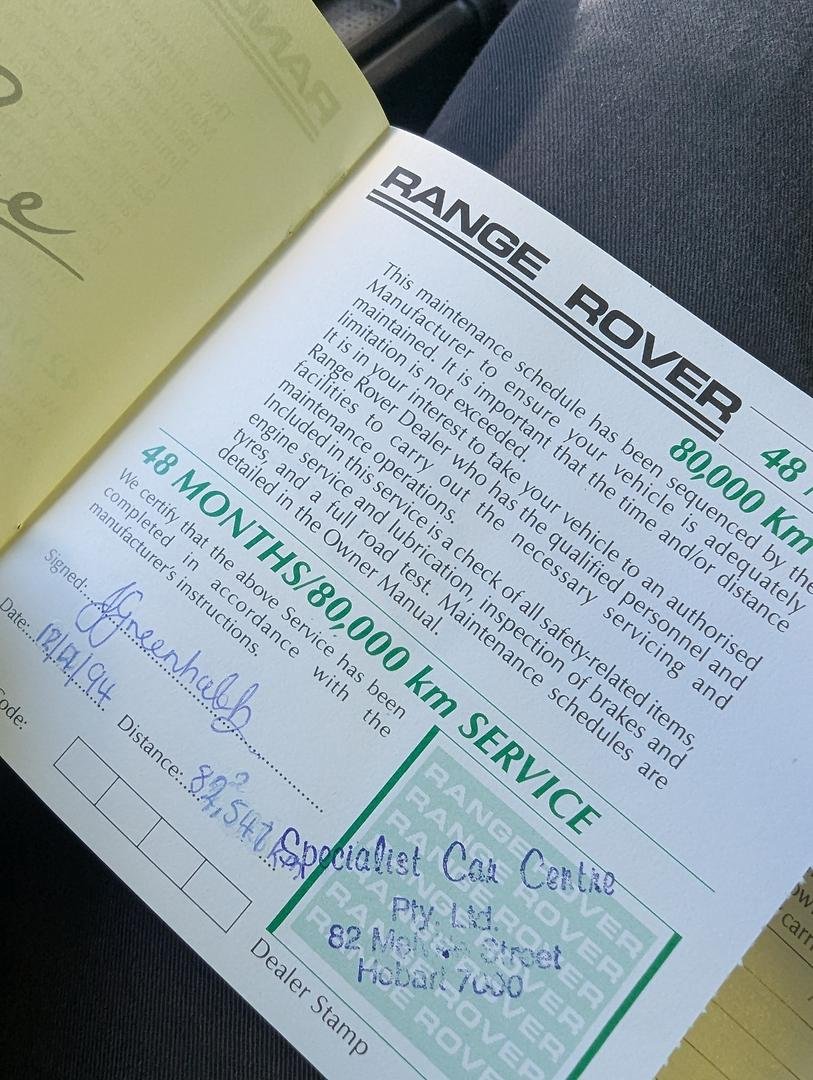 RANGE ROVER
48
80,000 Km
This maintenance schedule has been sequenced by the
Manufacturer to ensure your vehicle is adequately
maintained. It is important that the time and/or distance
limitation is not exceeded.
It is in your interest to take your vehicle to an authorised
Range Rover Dealer who has the qualified personnel and
facilities to carry out the necessary servicing and
maintenance operations.
Included in this service is a check of all safety-related items,
engine service and lubrication, inspection of brakes and
tyres, and a full road test. Maintenance schedules are
detailed in the Owner Manual.
48 MONTHS/80,000 km SERVICE
We certify that the above Service has been
completed in accordance with the
manufacturer's instructions.
Signed:
Date: /94
Distance: 82,547 km
Code:
Specialist Car Centre
Pty. Ltd.
82 Street
Hobart 7000
RANGE ROVER
RANGE ROVER
RANGE ROVER
RANGE ROVER
Dealer Stamp